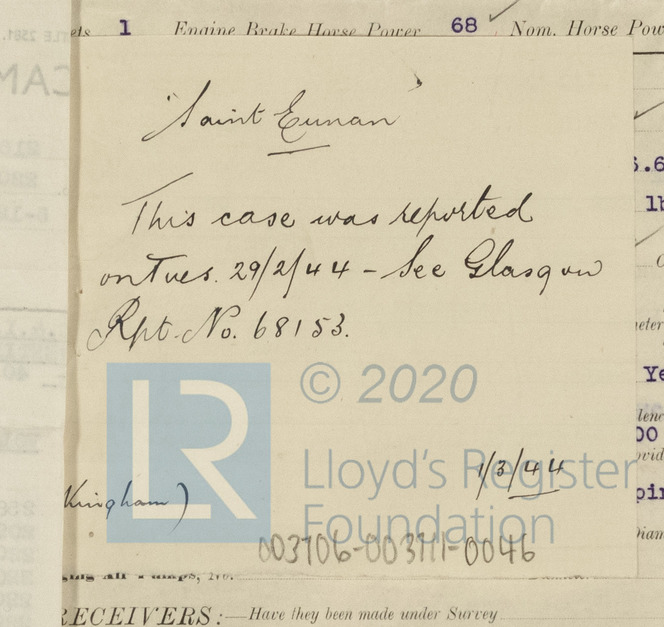 1 Engine Brake Horse Power 68 Nom. Horse Pow
"Saint Eunan"
This case was reported
on Tues. 29/2/44 - See Glasgow
Rpt. No. 68153.
© 2020
LR
Lloyd's Register
Foundation
1/3/44
Kingham)
003706-003711-0046
RECEIVERS:—Have they been made under Survey